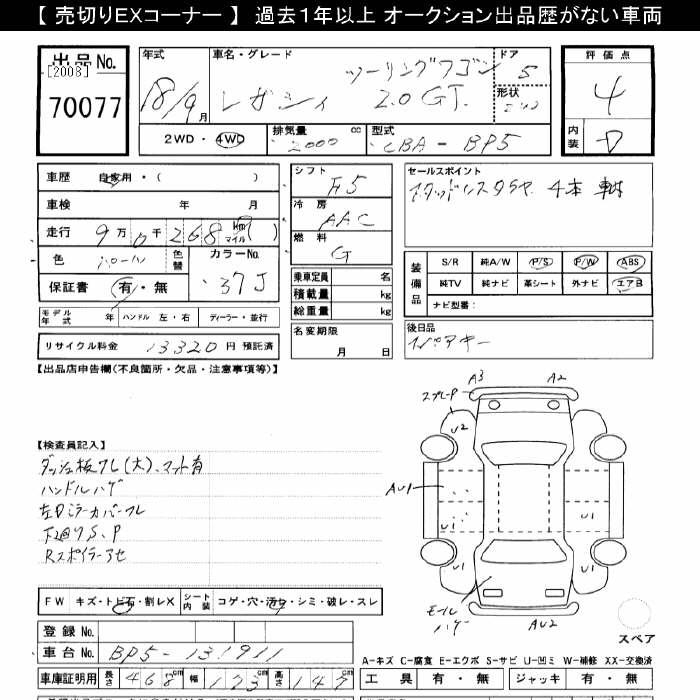 【 売切りEXコーナー 】 過去1年以上 オークション出品歴がない車両
出品No.
[2008]
70077
年式
18/9月
車名・グレード
レガシィ ツーリングワゴン 2.0GT.
ドア
5
形状
評価点
4
内装
D
2WD・4WD
排気量 2000 cc
型式 CBA-BP5
車歴 自家用・( )
車検 年 月
走行 9万0千268 km マイル
色 パール 色替
カラーNo. 37J
保証書 有・無
シフト F5
冷房 AAC
燃料 G
乗車定員 名
積載量 kg
総重量 kg
セールスポイント
スタッドレスタイヤ 4本
装備品
S/R 純A/W P/S P/W ABS
純TV 純ナビ 革シート 外ナビ エアB
ナビ型番:
モデル年式 年 ハンドル 左・右 ディーラー・並行
リサイクル料金 13320 円 預託済
名変期限
月 日
後日品
スペアキー
【出品店申告欄(不良箇所・欠品・注意事項等)】
【検査員記入】
ダッシュ板ワレ(大)、マット有
ハンドルハゲ
左Dミラーカバーワレ
下廻りS、P
Rスポイラーアセ
A3 A2
U2
AU1
U1 U1
U1 U1
モールハゲ
AU2
スペア
FW キズ・トビ石・割レX シート内装 コゲ・穴・汚レ・シミ・破レ・スレ
登録No.
車台No. BP5-131911
A-キズ C-腐食 E-エクボ S-サビ U-凹ミ W-補修 XX-交換済
車庫証明用 長さ 468cm 幅 173cm 高さ 147cm
工具 有・無 ジャッキ 有・無